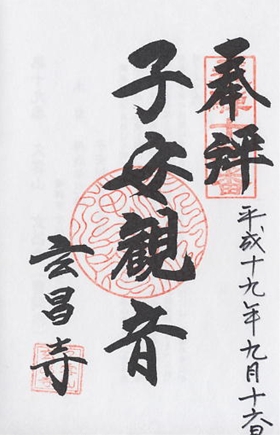 奉拝
平成十九年九月十六日
子安観音
玄昌寺